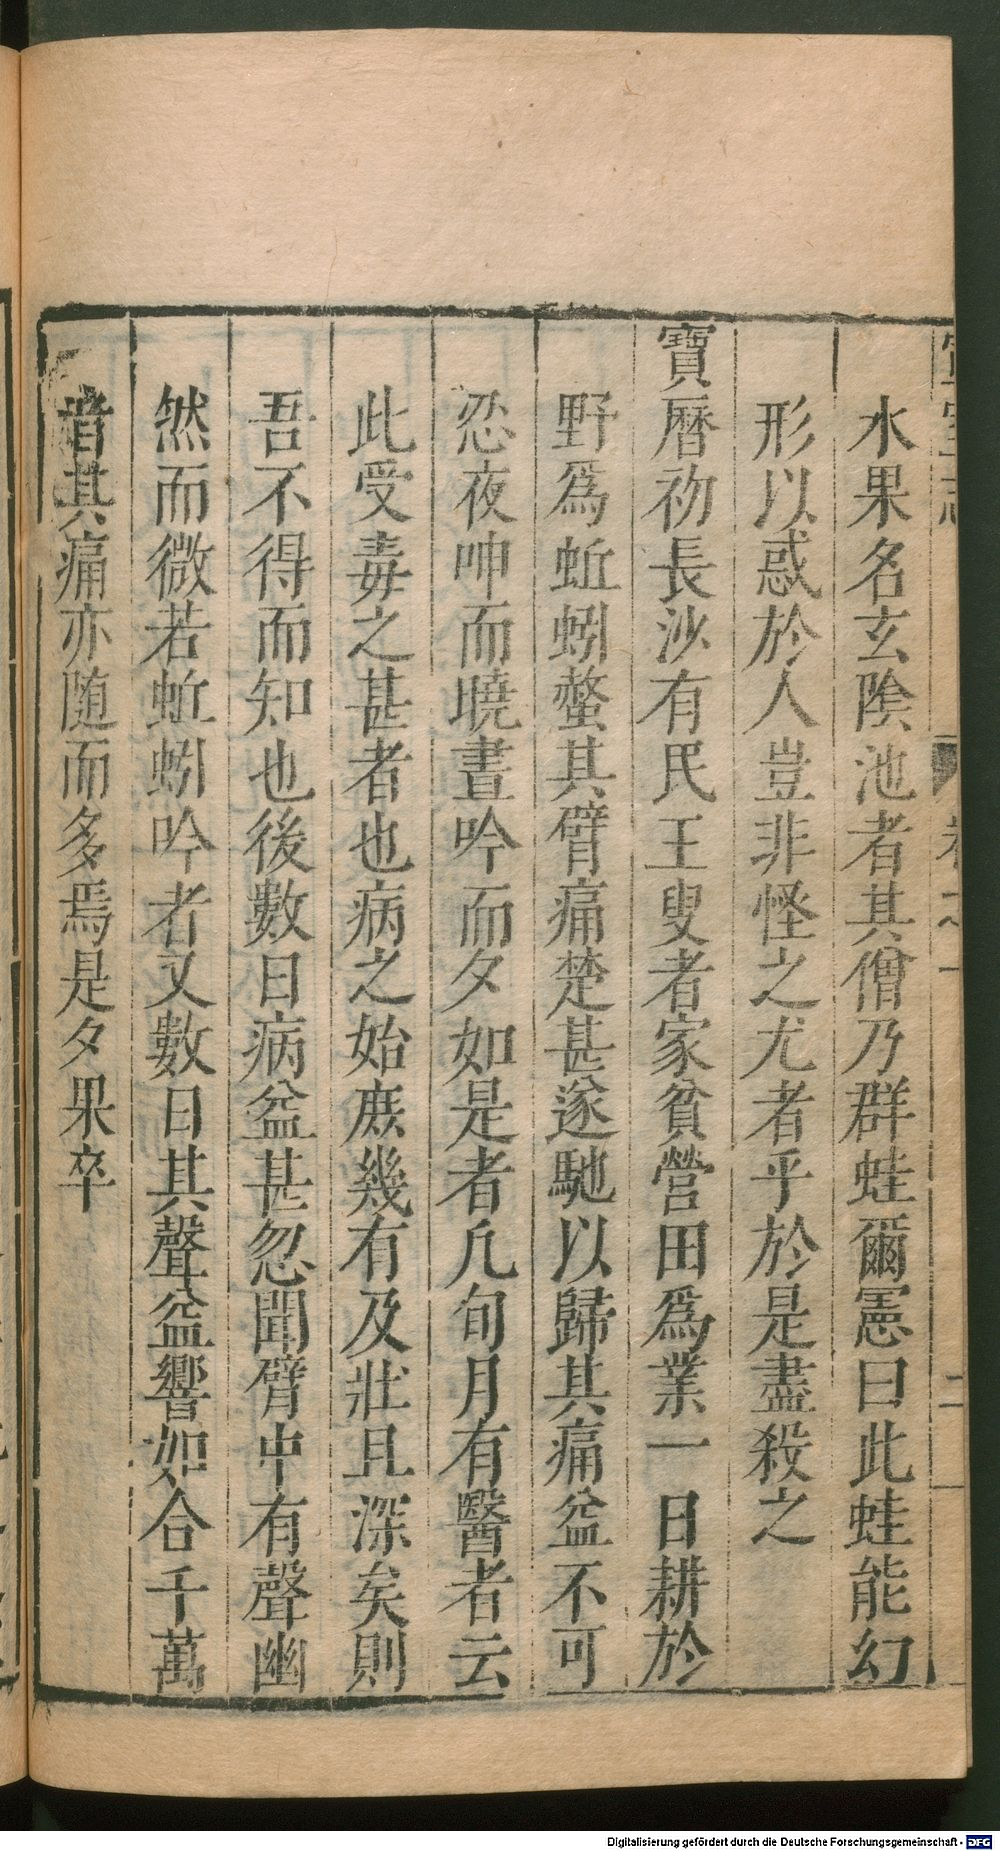 水果名玄陰池者其僧乃群蛙爾憲曰此蛙能幻
形以惑於人豈非怪之尤者乎於是盡殺之
寶曆初長沙有民王叟者家貧營田爲業一日耕於
野爲蚯蚓螫其臂痛楚甚遂馳以歸其痛益不可
忍夜呻而曉晝吟而夕如是者凡旬月有醫者云
此受毒之甚者也病之始庶幾有及壯且深矣則
吾不得而知也後數日病益甚忽聞臂中有聲幽
然而微若蚯蚓吟者又數日其聲益響如合千萬
音其痛亦随而多焉是夕果卒
Digitalisierung gefördert durch die Deutsche Forschungsgemeinschaft - DFG